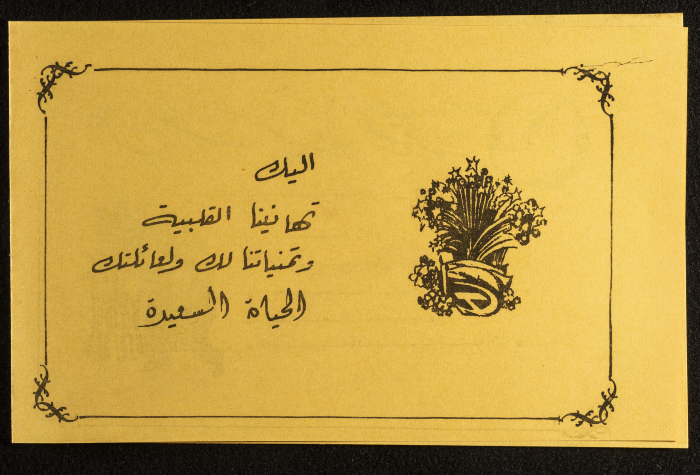 اليك
تهانينا القلبية
وتمنياتنا لك ولعائلتك
الحياة السعيدة